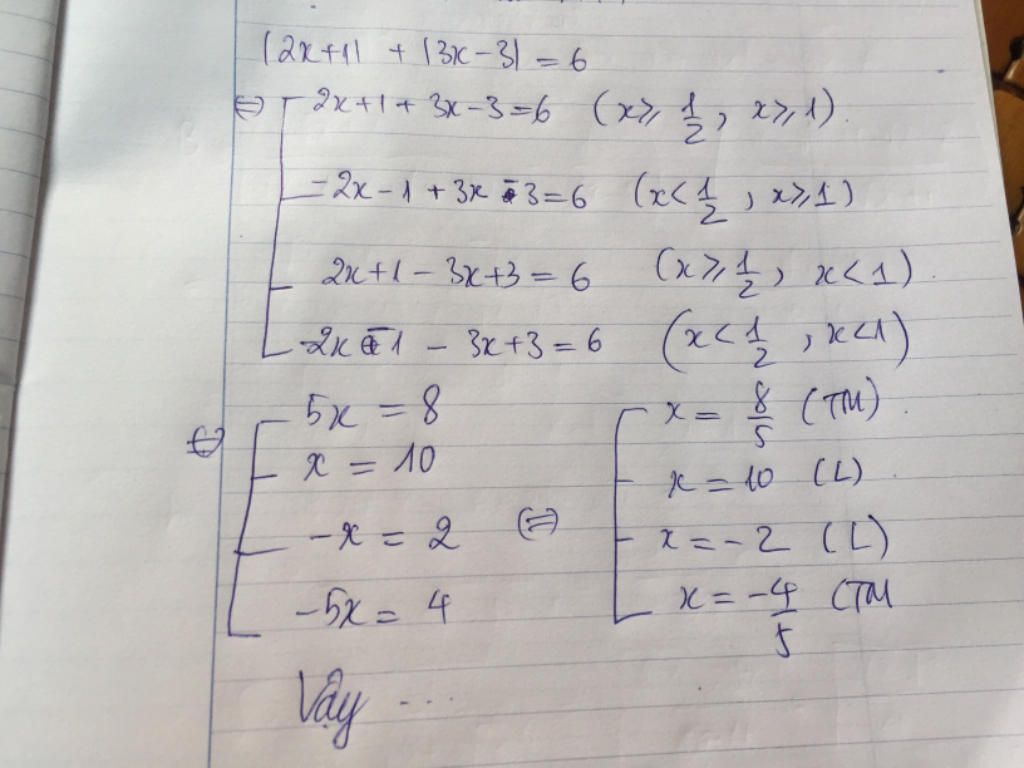 |2x+1| + |3x-3| = 6
⇔ 2x+1 + 3x-3 = 6 (x ≥ 1/2, x ≥ 1).
-2x-1 + 3x-3 = 6 (x < 1/2, x ≥ 1)
2x+1 - 3x+3 = 6 (x ≥ 1/2, x < 1).
-2x-1 - 3x+3 = 6 (x < 1/2, x < 1)
⇔ 5x = 8
x = 10
-x = 2
-5x = 4
⇔ x = 8/5 (TM).
x = 10 (L)
x = -2 (L)
x = -4/5 (TM
Vậy ...